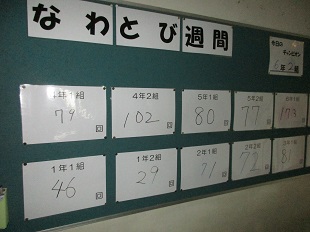 なわとび週間
今日の
チャンピオン
6年2組
4年1組
79
回
4年2組
102
回
5年1組
80
回
5年2組
77
回
173
1年1組
46
回
1年2組
29
回
2年1組
71
回
2年2組
72
回
81